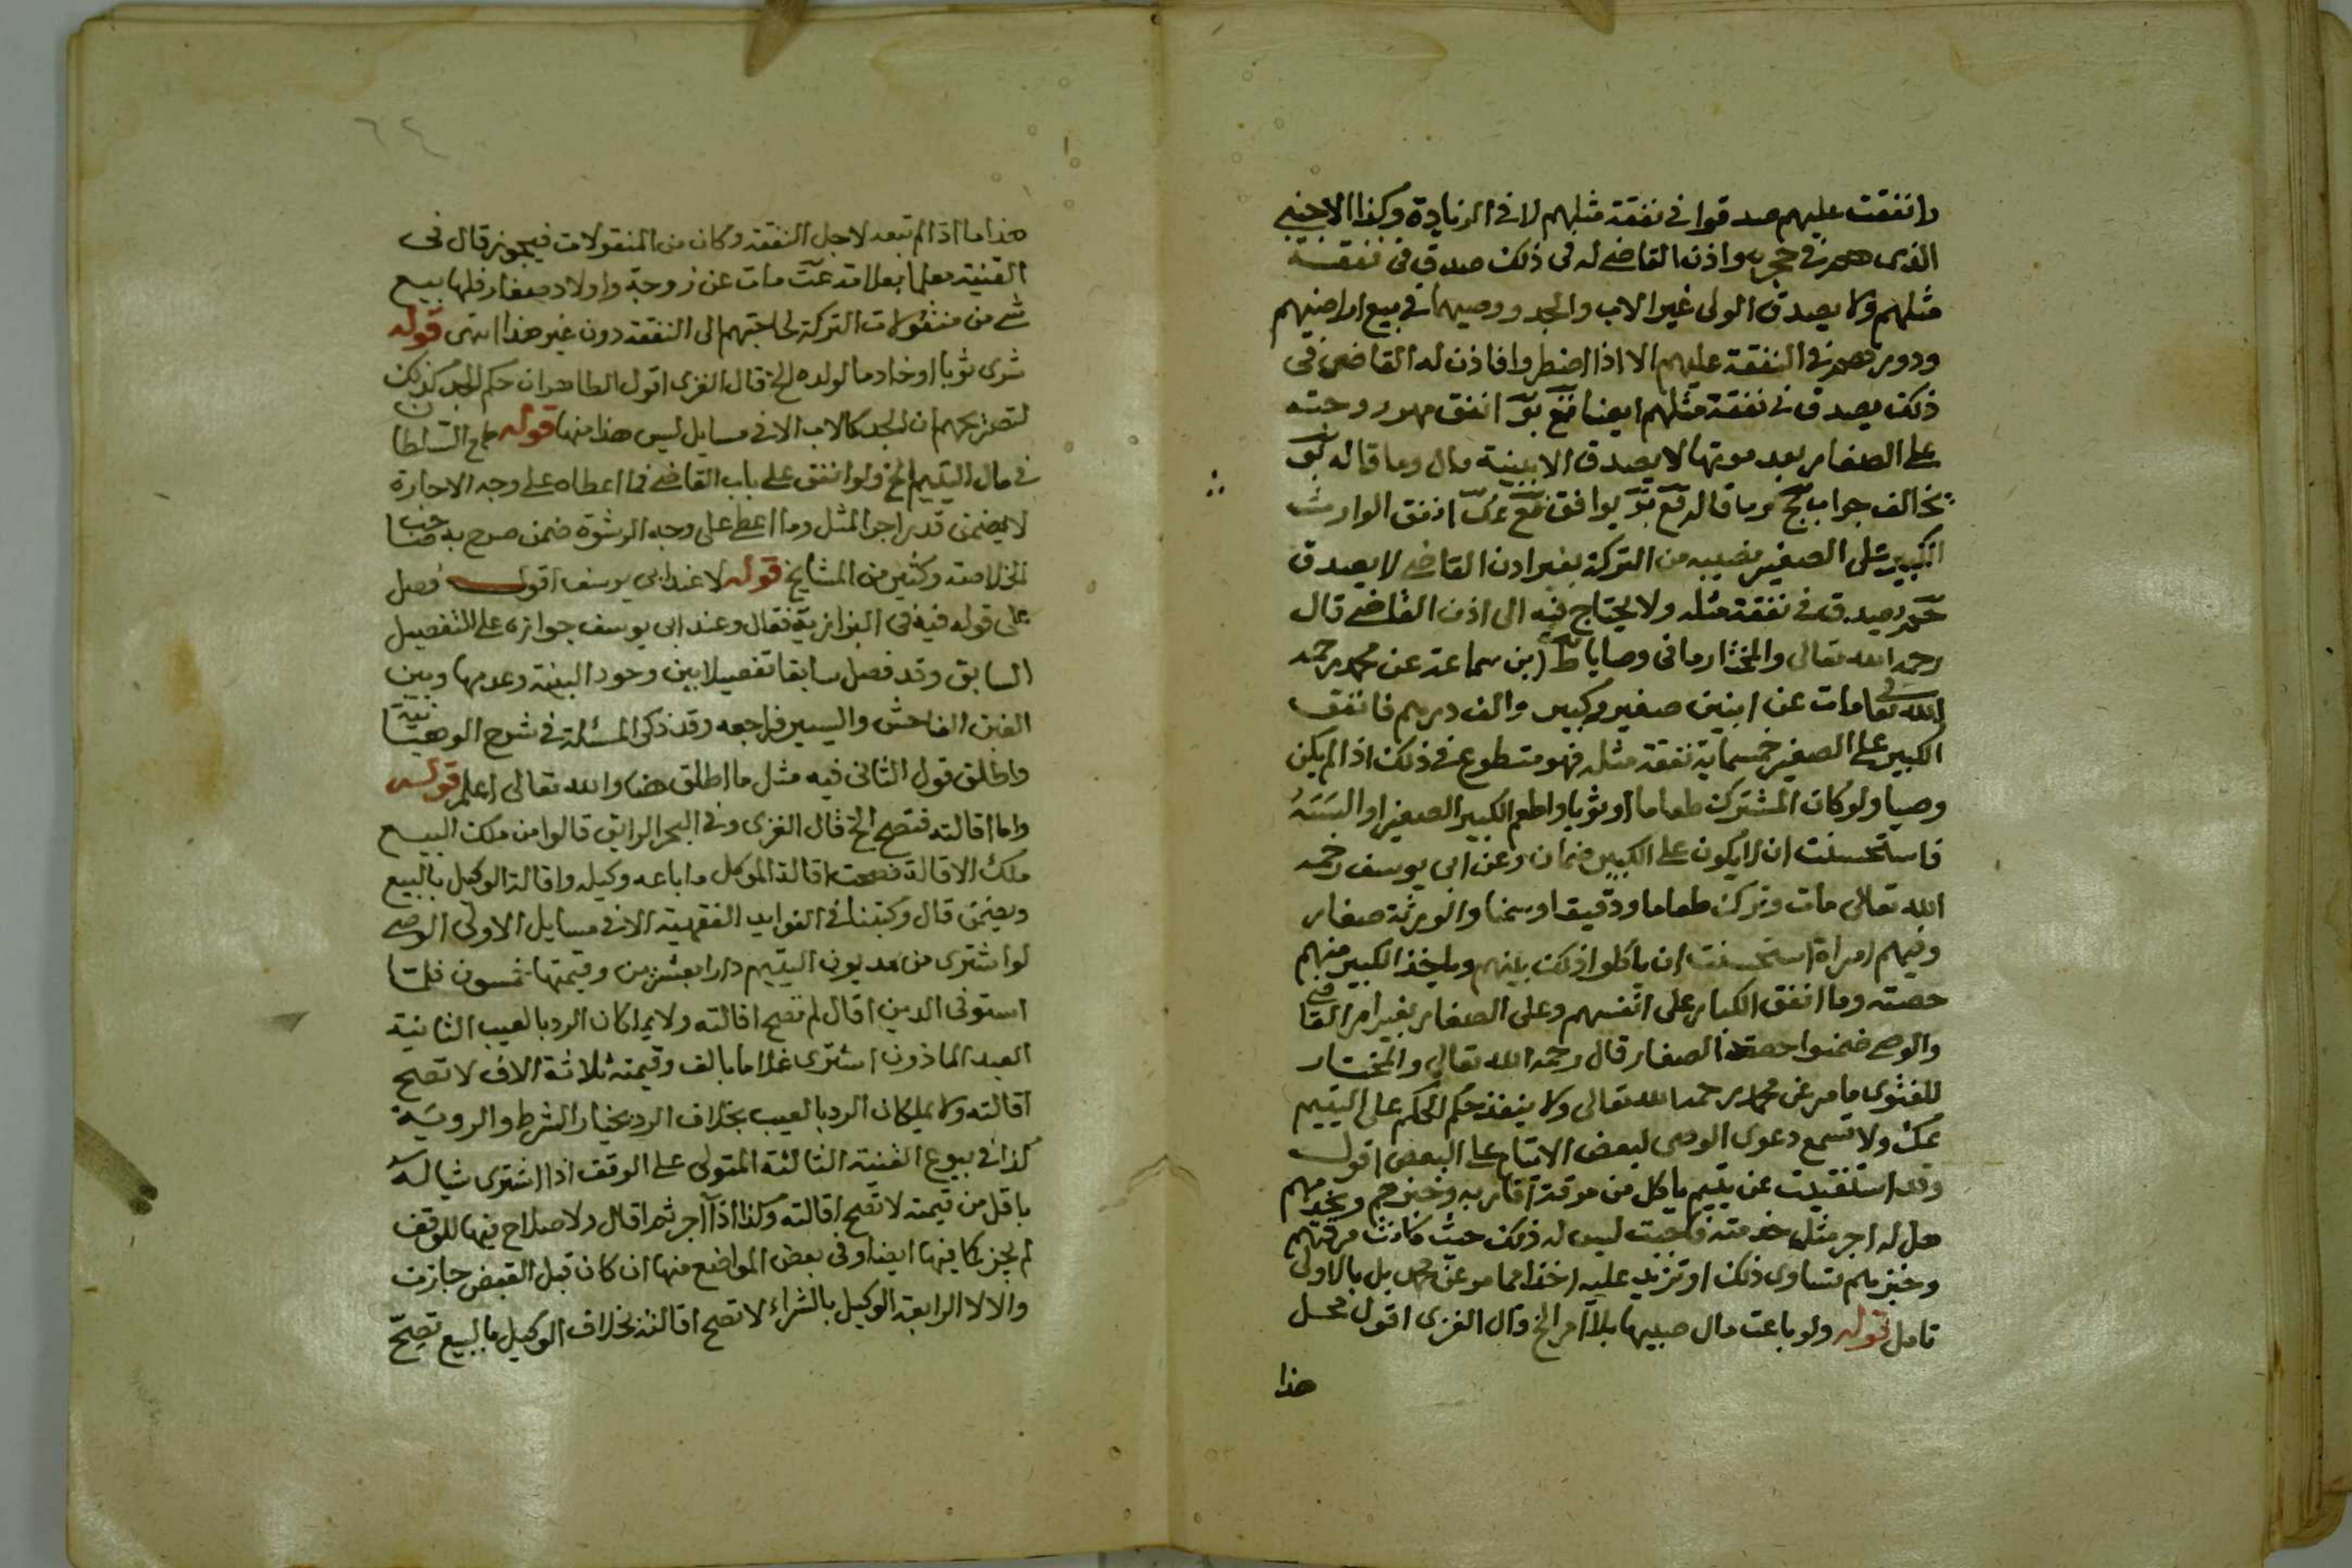 وانفقت عليهم صدقوا في نفقة مثلهم لا في الزيادة وكذا الاجنبي
الذي هم في حجره واذن القاضي له في ذلك صدق في نفقة
مثلهم ولا يصدق الولى غير الاب والجد ووصيهما في بيع اراضيهم
ودورهم في النفقة عليهم الا اذا اضطروا فاذن له القاضي في
ذلك يصدق في نفقة مثلهم ايضا انفق مهر زوجته
على الصغار بعد موتها لا يصدق الا ببينة قال وما قاله
يخالف جواب وما قاله يوافق انفق الوارث
الكبير على الصغير نصيبه من التركة بغير اذن القاضي لا يصدق
يصدق في نفقة مثله ولا يحتاج فيه الى اذن القاضي قال
رحمه الله تعالى والمختار ما في وصايا ط ابن سماعة عن محمد رحمه
الله تعالى مات عن ابنين صغير وكبير والف درهم فانفق
الكبير على الصغير خمسماية نفقة مثله فهو متطوع في ذلك اذا لم يكن
وصيا ولو كان المشترك طعاما او ثوبا واطعم الكبير الصغير او البسه
فاستحسنت ان لا يكون على الكبير ضمان وعن ابي يوسف رحمه
الله تعالى مات وترك طعاما ودقيقا وسمنا والورثة صغار
وفيهم امراة استحسنت ان ياكلوا ذلك بينهم وياخذ الكبير منهم
حصته وما انفق الكبار على انفسهم وعلى الصغار بغير امر القاضي
والوصي ضمنوا حصة الصغار قال رحمه الله تعالى والمختار
للفتوى ما مر عن محمد رحمه الله تعالى ولا ينفذ حكم الحكم على اليتيم
عك ولا تسمع دعوى الوصى لبعض الايتام على البعض اقول
وقد استفتيت عن يتيم ياكل من مرقة اقاربه وخبزهم ويخدمهم
هل له اجر مثل خدمته فاجبت ليس له ذلك حيث كانت مرقتهم
وخبزهم تساوي ذلك او تزيد عليه اخذا مما مر عن محمد بل بالاولى
تامل قوله ولو باعت مال صبيها بلا امر الخ قال الغزى اقول محمل
هذا
٦٢
هذا ما اذا لم تبعه لاجل النفقة وكان من المنقولات فيجوز قال في
القنية معلما بعلامة عت مات عن زوجة واولاد صغار فلها بيع
شي من منقولات التركة لحاجتهم الى النفقة دون غير هذا انتهى قوله
شرى ثوبا او خادما لولده الخ قال الغزى اقول الظاهر ان حكم الجد كذلك
لتصريحهم ان الجد كالاب الا في مسايل ليس هذا منها قوله طمع السلطان
في مال اليتيم الخ ولو انفق على باب القاضي فما اعطاه على وجه الاجارة
لا يضمن قدر اجر المثل وما اعطى على وجه الرشوة ضمن صرح به صاحب
الخلاصة وكثير من المشايخ قوله لا عند ابي يوسف اقول فصل
على قوله فيه في البزازية فقال وعند ابى يوسف جوازه على التفصيل
السابق وقد فصل سابقا تفصيلا بين وجود البينة وعدمها وبين
الغبن الفاحش واليسير فراجعه وقد ذكر المسئلة في شرح الوهبانية
واطلق قول الثاني فيه مثل ما اطلق هنا والله تعالى اعلم قوله
واما اقالته فتصح الخ قال الغزى وفي البحر الرايق قالوا من ملك البيع
ملك الاقالة فصحت اقالة الموكل ما باعه وكيله واقالة الوكيل بالبيع
ويضمن قال وكتبنا في الفوايد الفقهية الا في مسايل الاولى الوصي
لو اشترى من مديون اليتيم دارا بعشرين وقيمتها خمسون فلما
استوفى الدين اقال لم تصح اقالته ولا يملكان الرد بالعيب الثانية
العبد الماذون اشترى غلاما بالف وقيمته ثلاثة الاف لا تصح
اقالته ولا يملكان الرد بالعيب بخلاف الرد بخيار الشرط والروية
كذا في بيوع القنية الثالثة المتولى على الوقف اذا اشترى شيا له
باقل من قيمته لا تصح اقالته وكذا اذا آجر ثم اقال ولا صلاح فيها للوقف
لم يجز كما فيها ايضا وفي بعض المواضع منها ان كان قبل القبض جازت
والا لا الرابعة الوكيل بالشراء لا تصح اقالته بخلاف الوكيل بالبيع تصح